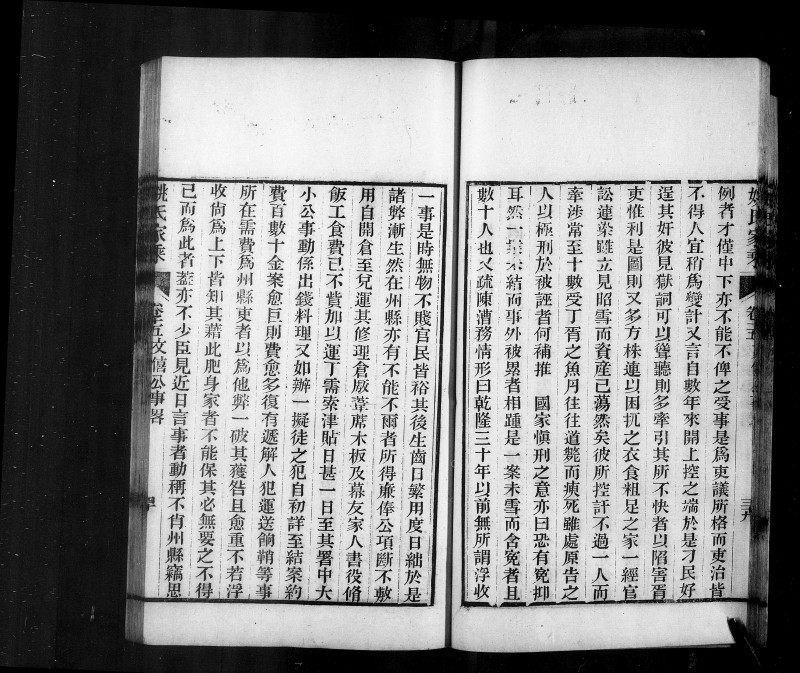 姚氏家乘
卷五
例者才僅中下亦不能不俾之受事是爲吏議所格而吏治皆
不得人宜稍爲變計又言自數年來開上控之端於是刁民好
逞其好彼見獄詞可以聳聽則多牽引其所不快者以陷害胥
吏惟利是圖則又多方株連以困抗之衣食粗足之家一經官
訟蓮染雖立見昭雪而資產已蕩然矣彼所控訐不過一人而
牽涉常至十數受丁胥之魚肉往往道斃而瘐死雖處原告之
人以極刑於被誣者何補推 國家慎刑之意亦曰恐有冤抑
耳然一案未結而事外被累者相踵是一案未雪而含冤者且
數十人也又疏陳漕務情形曰乾隆三十年以前無所謂浮收
一事是時無物不賤官民皆裕其後生齒日繁用度日絀於是
諸弊漸生然在州縣亦有不能不爾者所得廉俸公項斷不敷
用自開倉至兌運其修理倉廒葦蓆木板及幕友家人書役脩
飯工食費已不貲加以運丁需索津貼日甚一日至其署中大
小公事動係出錢料理又如辦一擬徒之犯自初詳至結案約
費百數十金案愈巨則費愈多復有遞解人犯運送餉鞘等事
所在需費爲州縣吏者以爲他弊一破其獲咎且愈重不若浮
收尚爲上下皆知其藉此肥身家者不能保其必無要之不得
已而爲此者蓋亦不少臣見近日言事者動稱不肖州縣竊思
姚氏家乘
卷五文僖公事畧